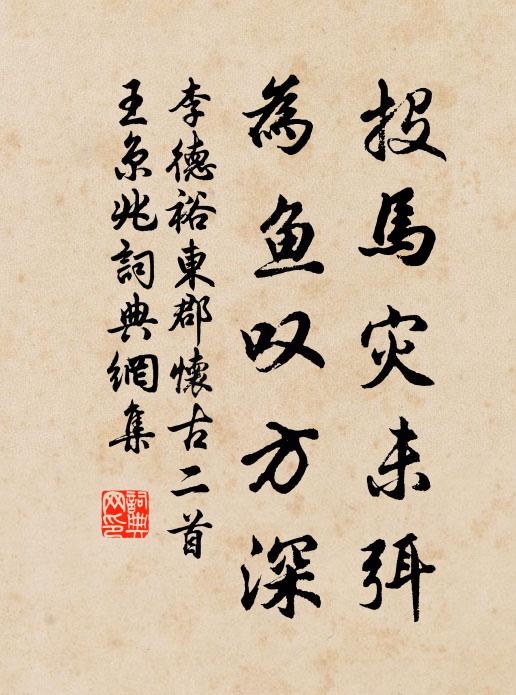 投馬灾未弭
為鱼叹方深
李德裕東郡懷古二首
王京兆詞典網集
詞典网印